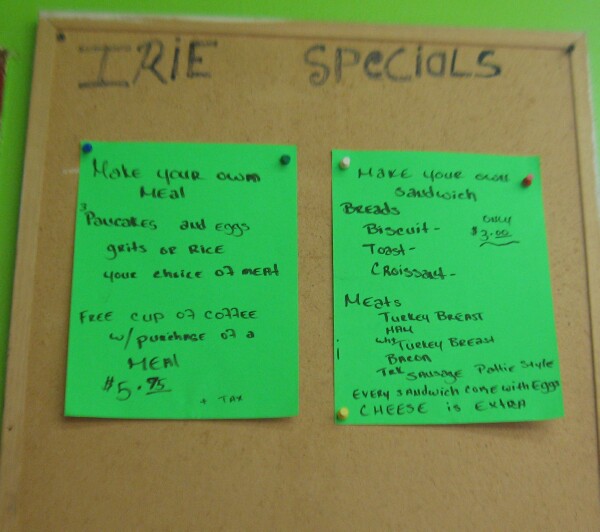 IRIE SPECIALS
Make your own
Meal
3 Pancakes and eggs
grits or Rice
your choice of meat
Free cup of coffee
w/purchase of a
Meal
$5.95
+ TAX
Make your own
Sandwich
Breads
Biscuit-
only
$3.00
Toast-
Croissant-
Meats
Turkey Breast
Ham
Turkey Breast
Bacon
Sausage Pattie Style
Every sandwich come with Eggs
CHEESE is EXTRA